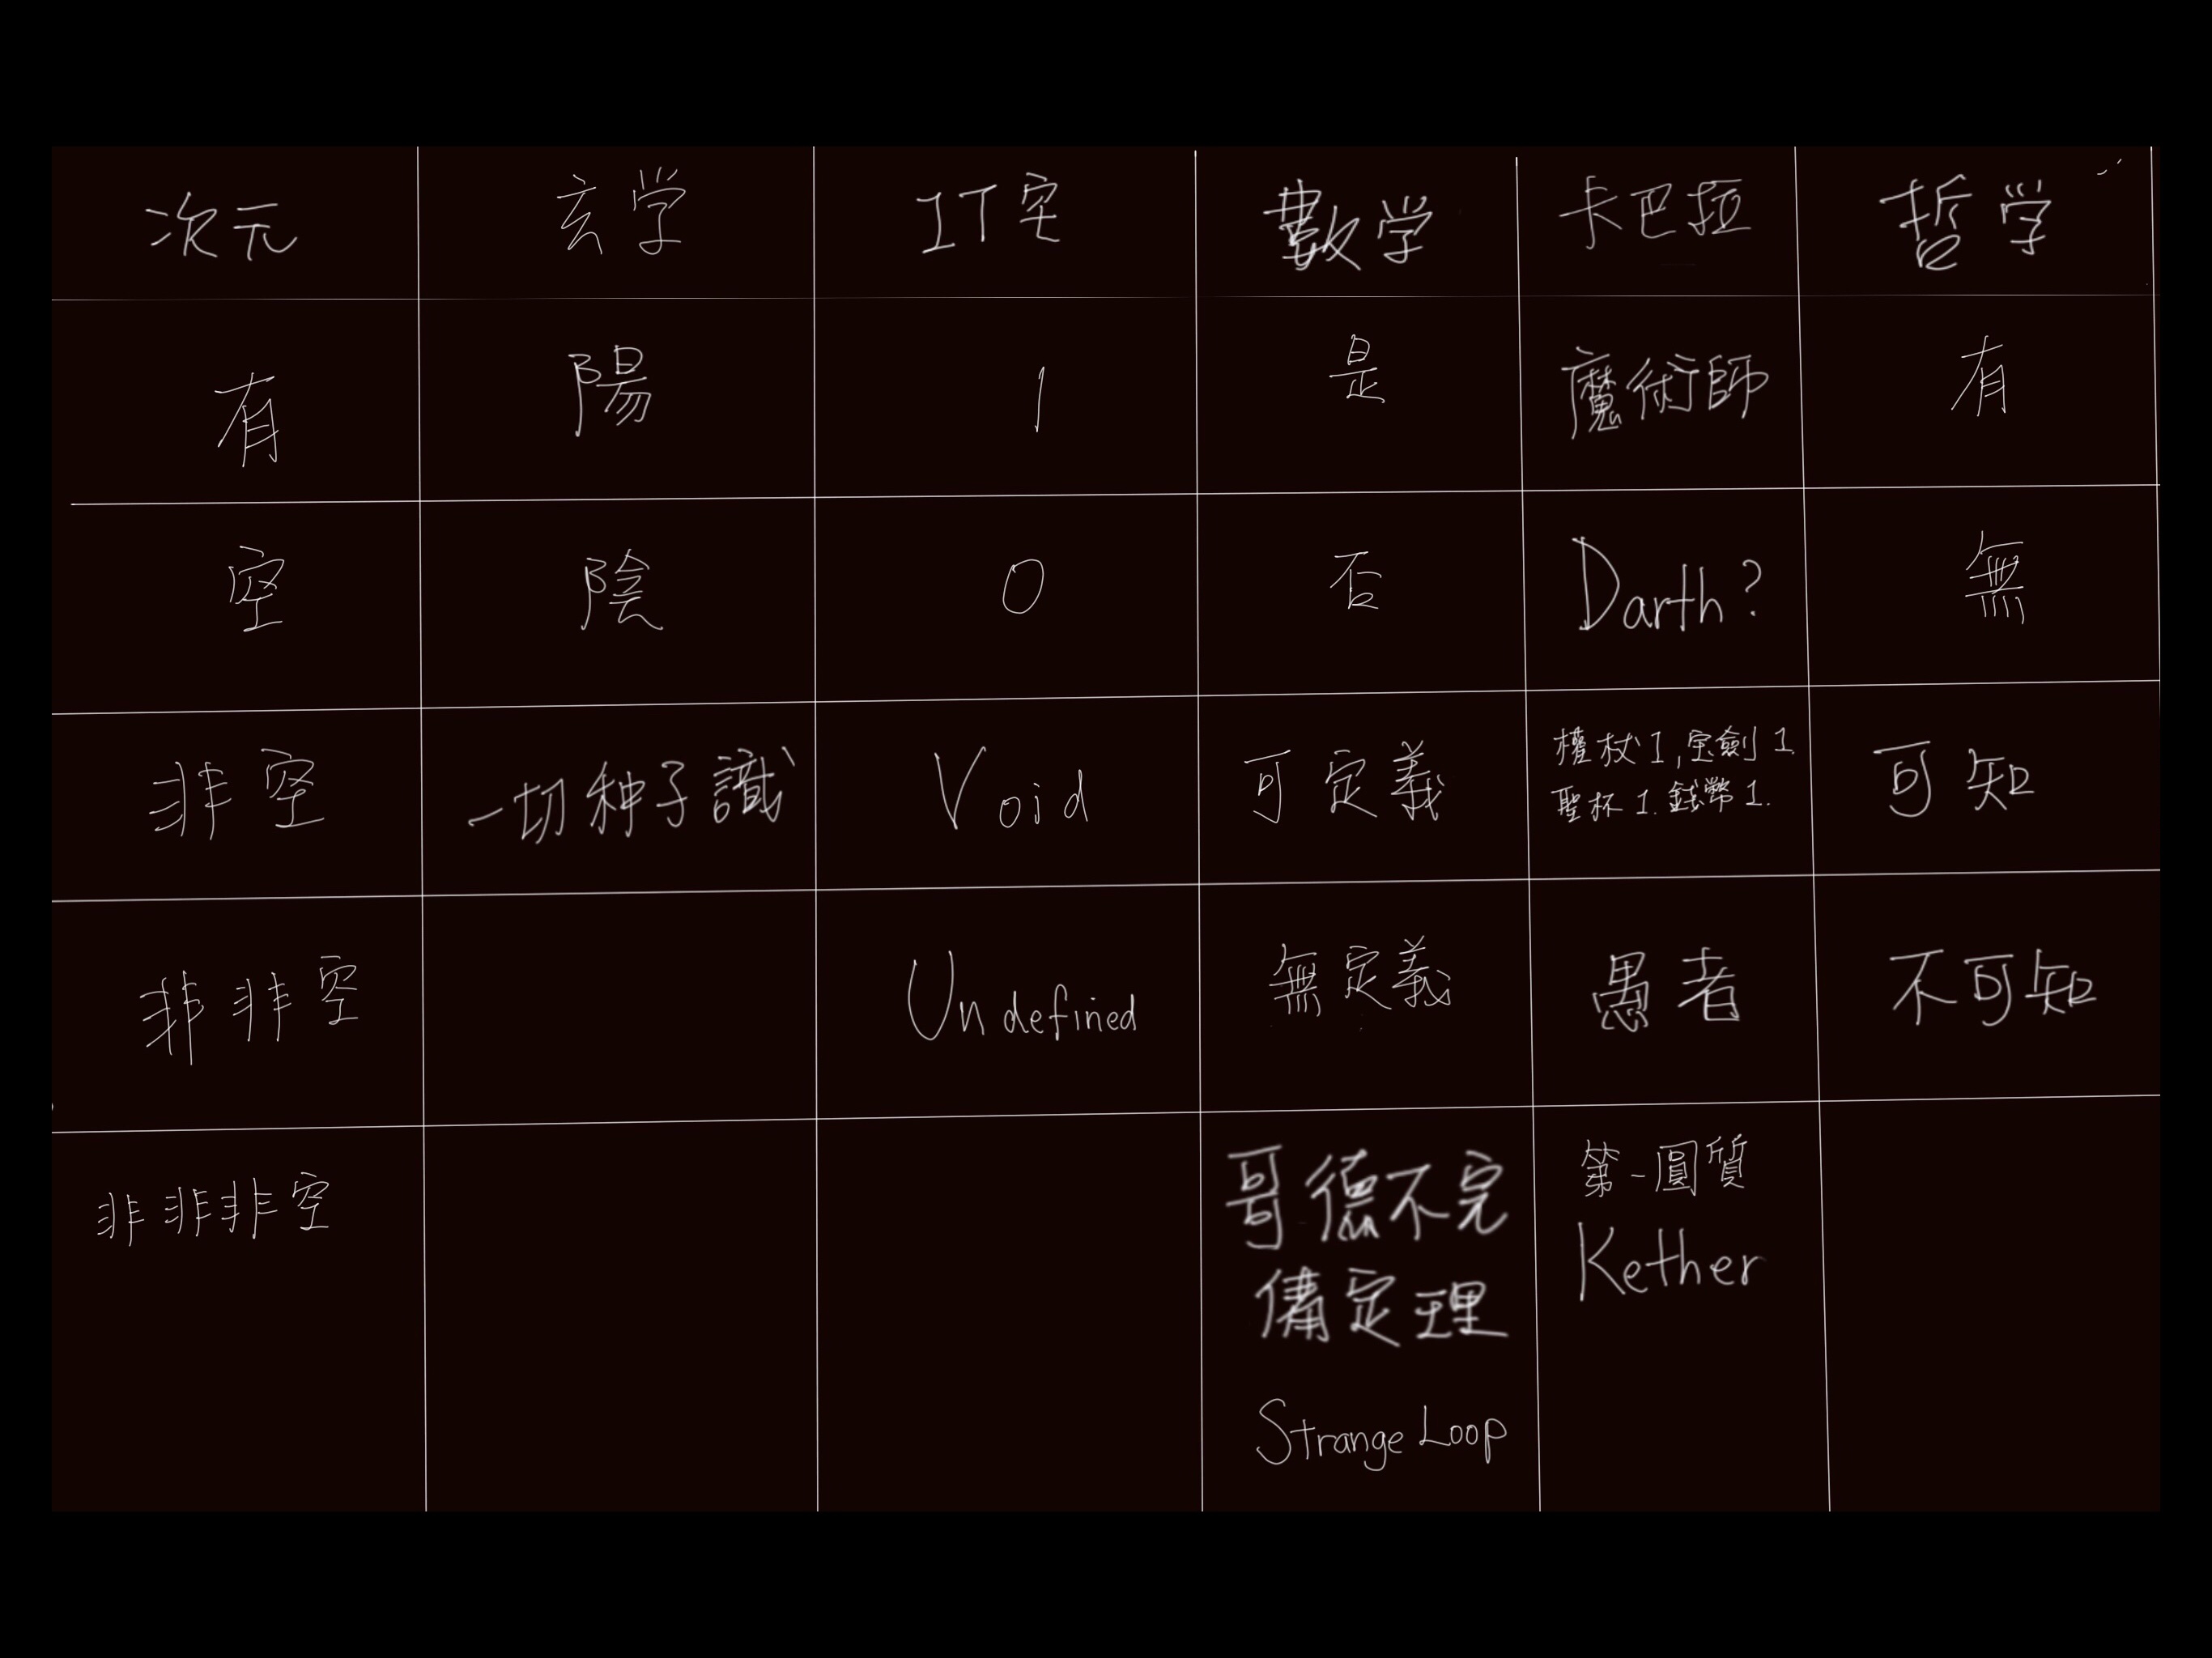 次元 玄学 IT空 數学 卡巴拉 哲学
有 陽 1 是 魔術師 有
空 陰 0 否 Darth? 無
非空 一切种子識 Void 可定義 權杖1,宝劍1. 可知
聖杯1.錢幣1.
非非空 Undefined 無定義 愚者 不可知
非非非空 哥德不完 第一圓質
備定理 Kether
Strange Loop